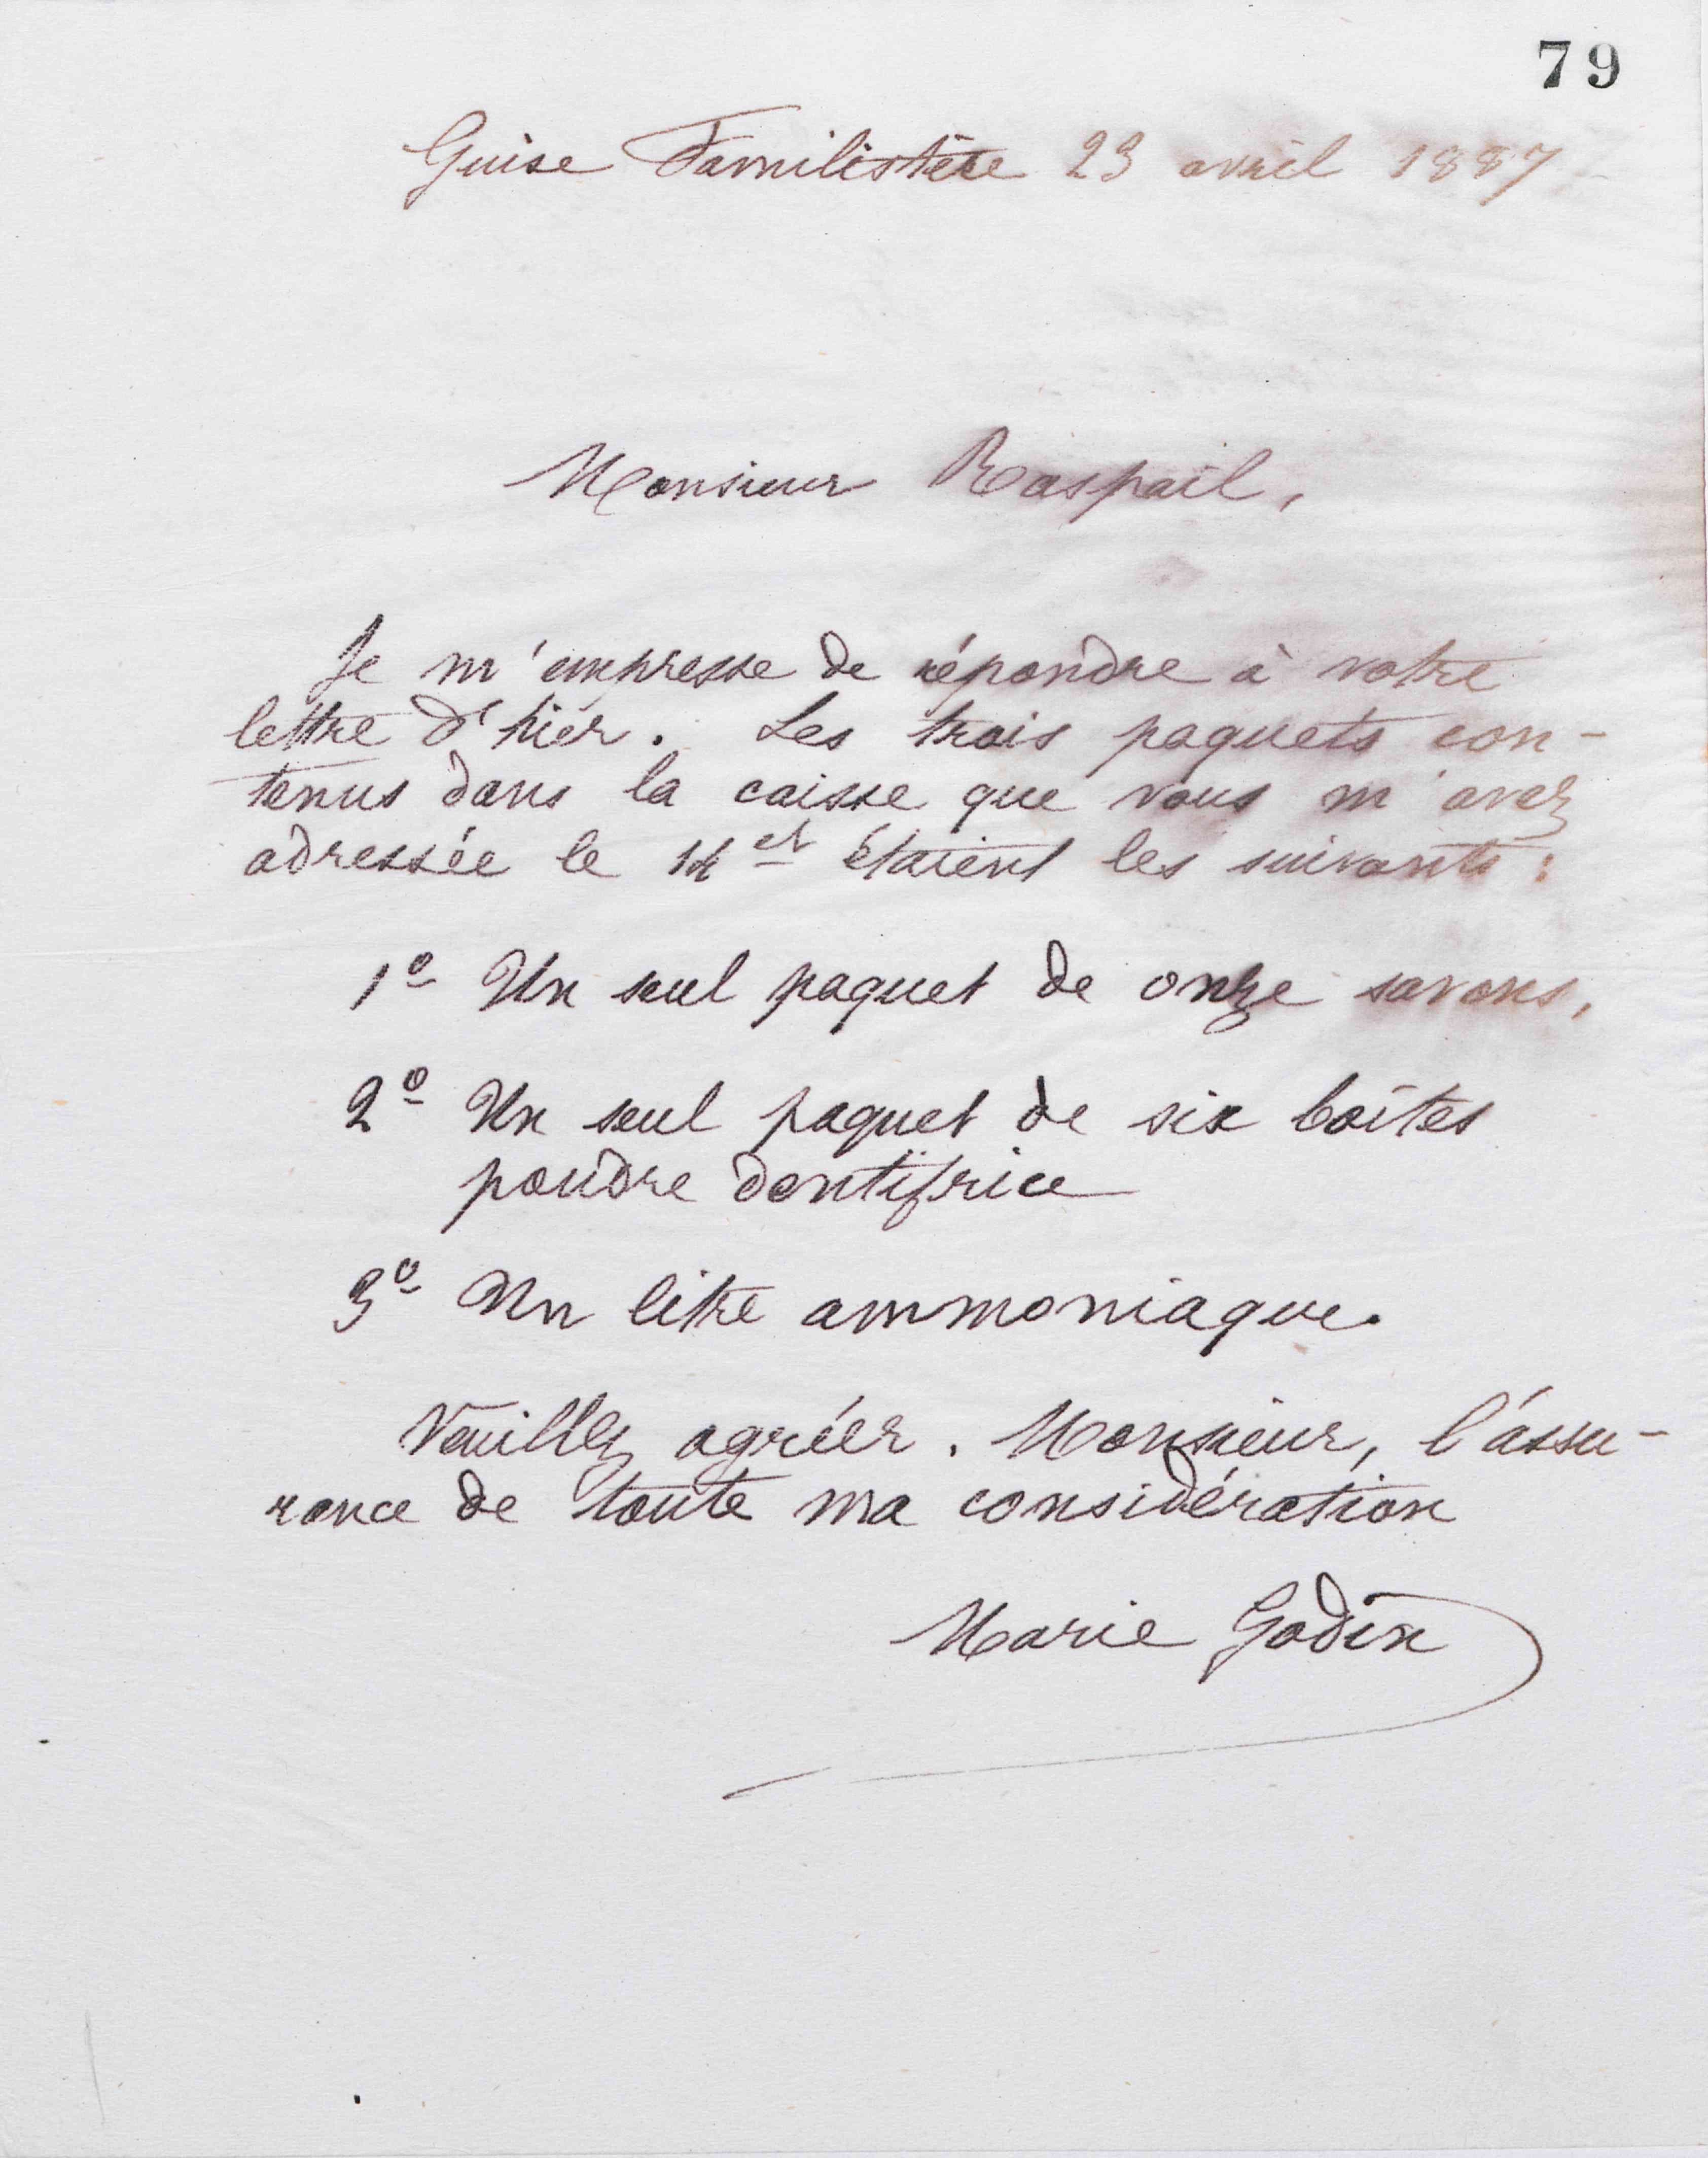 79
Guise Familistère 23 avril 1887
Monsieur Raspail,
Je m'empresse de répondre à votre
lettre d'hier. Les trois paquets con-
tenus dans la caisse que vous m'avez
adressée le 14 ct étaient les suivants :
1º Un seul paquet de onze savons,
2º Un seul paquet de six boîtes
poudre dentifrice
3º Un litre ammoniaque.
Veuillez agréer. Monsieur, l'assu-
rance de toute ma considération
Marie Godin